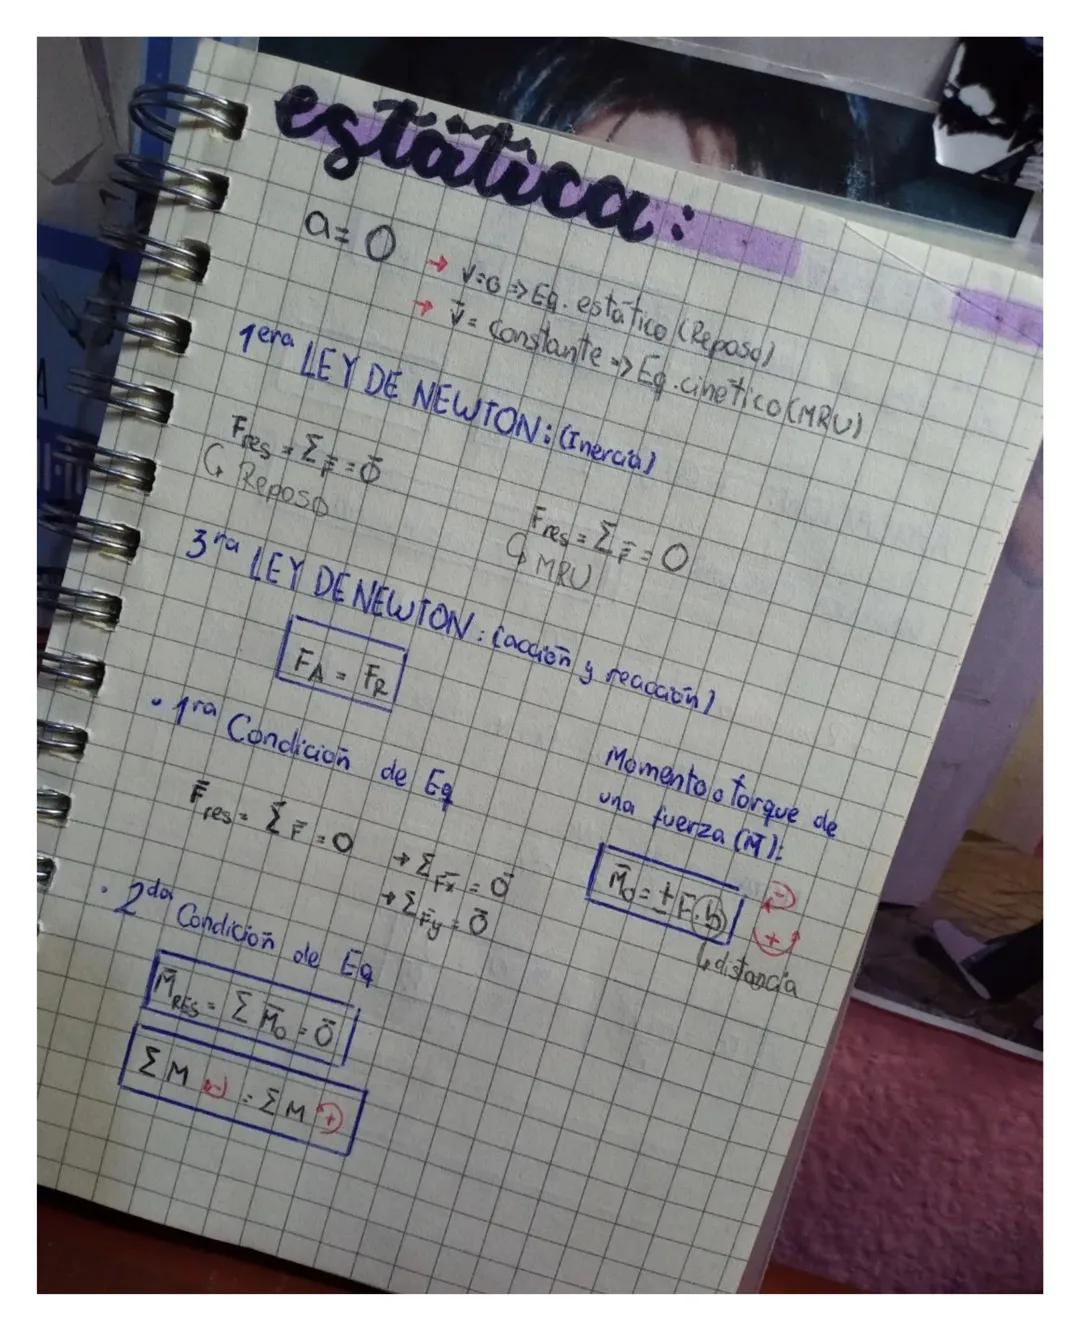 estática:
a = 0
→ v=0 => Eq. estático (Reposo)
→ v̄ = Constante => Eq. cinetico (MRU)
1era LEY DE NEWTON: (Inercia)
Fres = Σ F̄ = 0̄
↳ Reposo
Fres = Σ F̄ = 0
↳ MRU
3ra LEY DE NEWTON: (acción y reacción)
FA = FR
• 1ra Condición de Eq
F̄res = Σ F̄ = 0
→ Σ F̄x = 0̄
→ Σ F̄y = 0̄
Momento o torque de
una fuerza (M̄):
M̄o = ± F̄.b
(-)
(+)
↳ distancia
• 2da Condición de Eq
M̄RES = Σ M̄o = 0̄
Σ M (-) = Σ M (+)